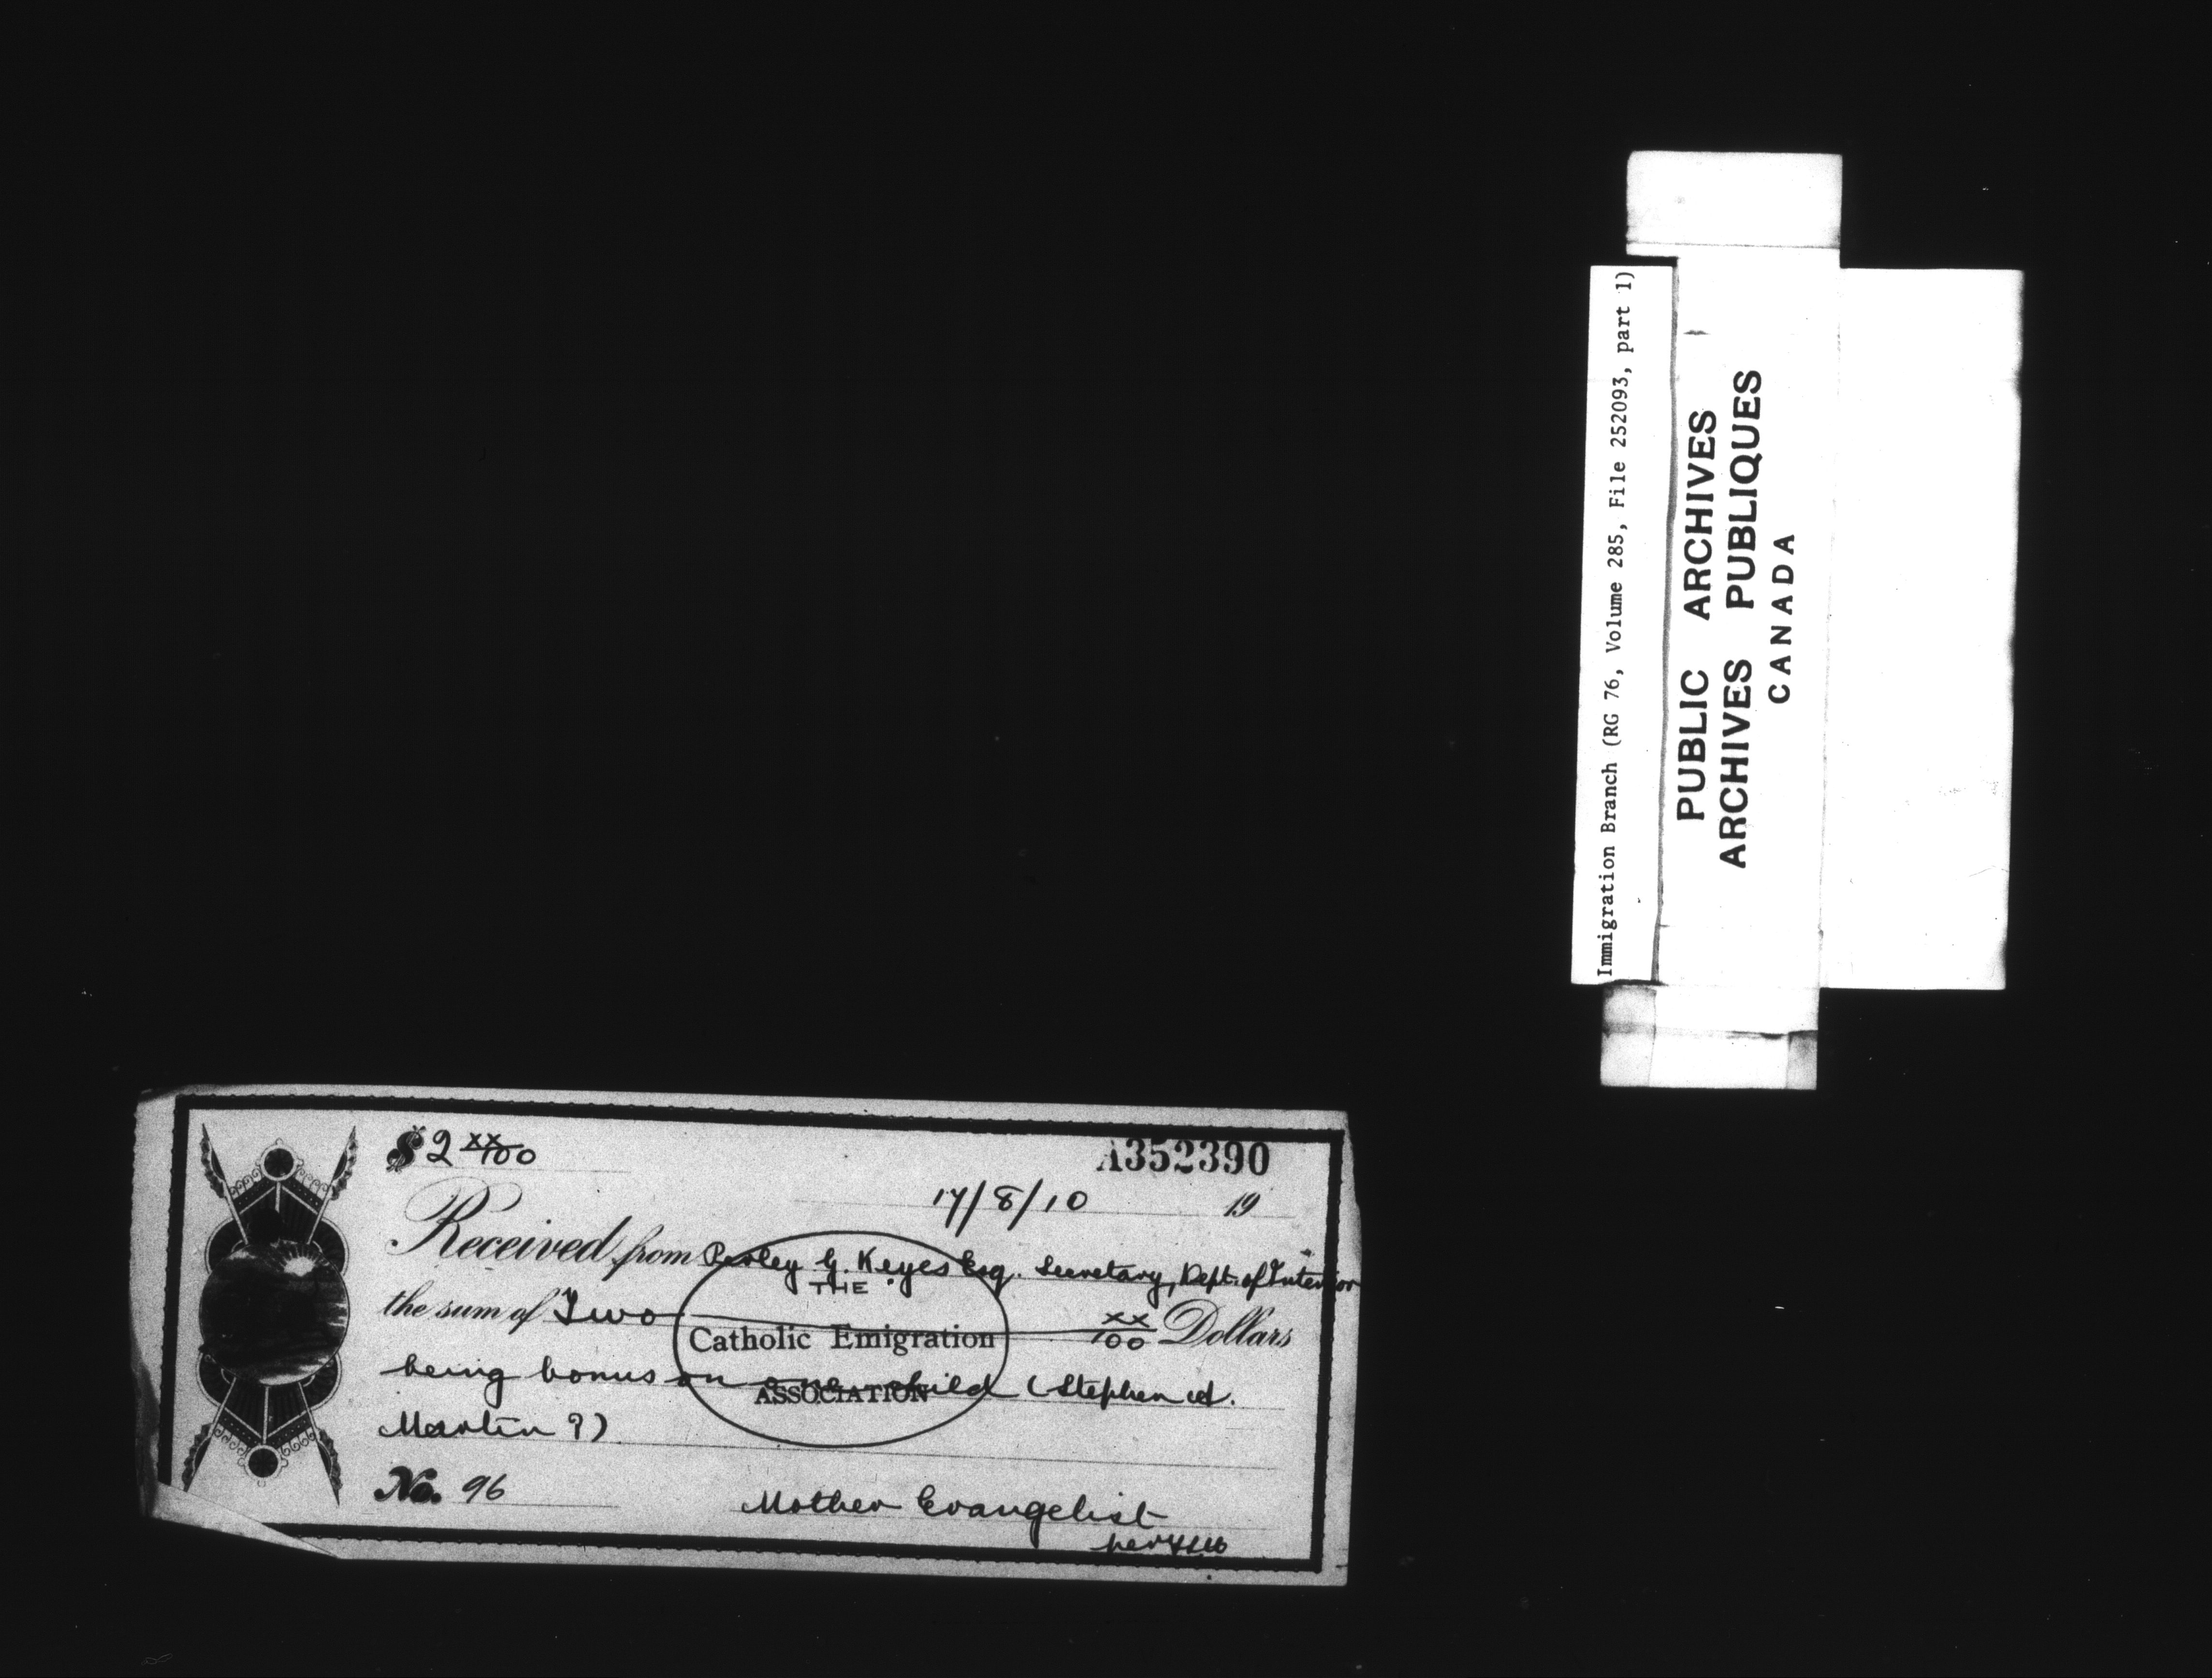 Immigration Branch (RG 76, Volume 285, File 252093, part 1)
PUBLIC ARCHIVES
ARCHIVES PUBLIQUES
CANADA
$2 xx/100
A352390
17/8/10 19
Received from Perley G. Keyes Esq. Secretary, Dept. of Interior
THE
the sum of Two xx/100 Dollars
Catholic Emigration
being bonus on one child (Stephen A.
ASSOCIATION
Martin ?)
No. 96
Mother Evangelist
per